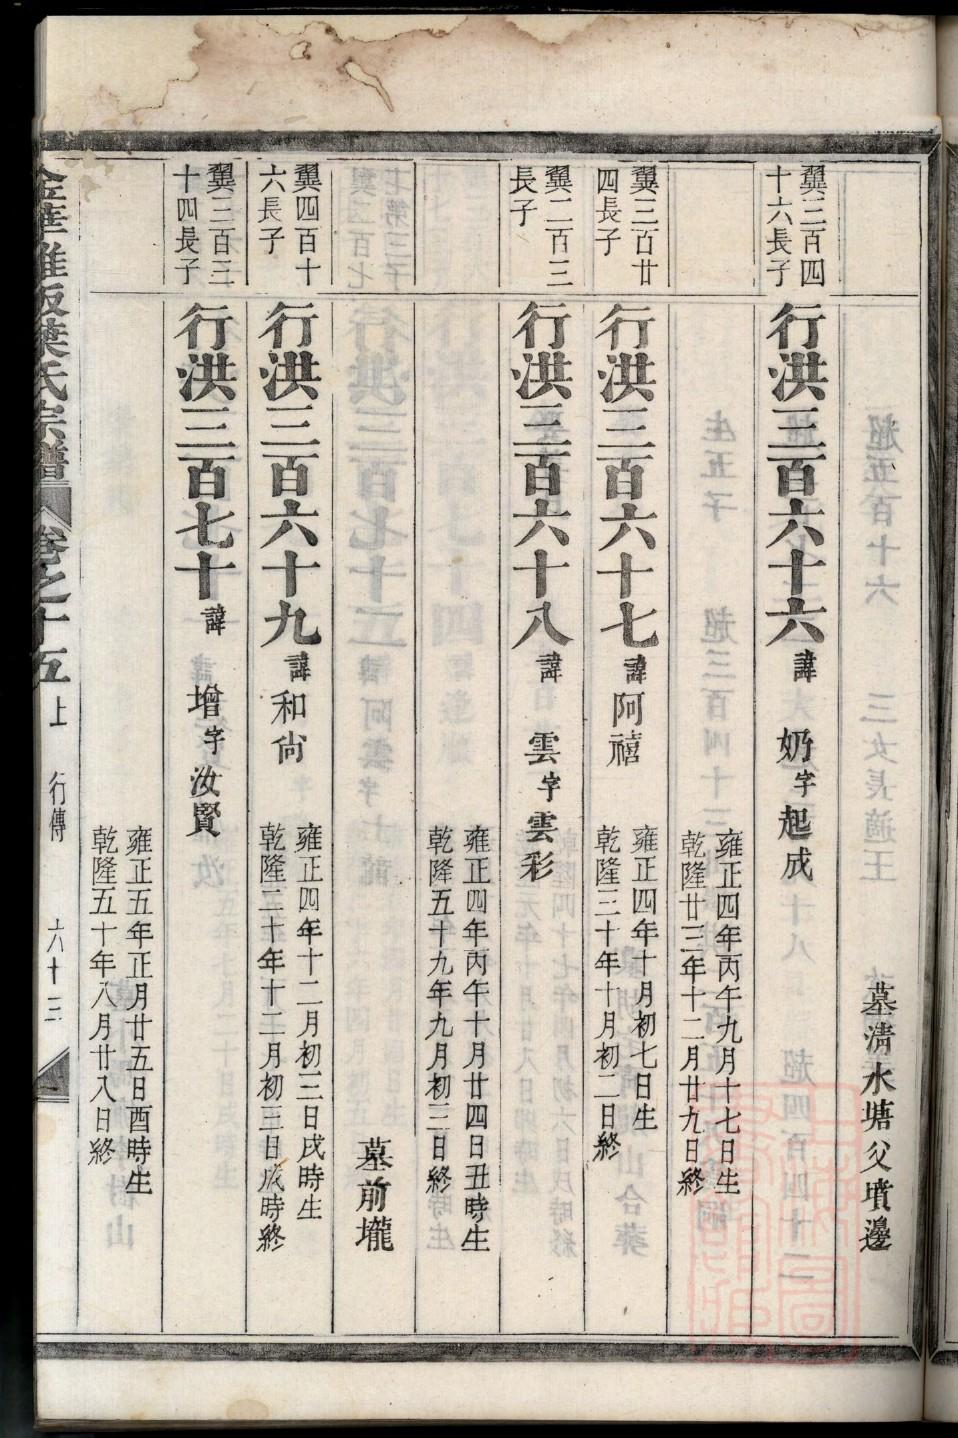 墓清水塘父墳邊
翼三百四十六長子
行洪三百六十六 諱奶字起成
雍正四年丙午九月十七日生
乾隆廿三年十二月廿九日終
翼三百廿四長子
行洪三百六十七 諱阿禧
雍正四年十月初七日生
乾隆三十年十月初二日終
翼二百三長子
行洪三百六十八 諱雲字雲彩
雍正四年丙午十月廿四日丑時生
乾隆五十九年九月初三日終
墓前壠
翼四百十六長子
行洪三百六十九 諱和尙
雍正四年十二月初三日戌時生
乾隆二十年十二月初三日戌時終
翼三百三十四長子
行洪三百七十 諱增字汝賢
雍正五年正月廿五日酉時生
乾隆五十年八月廿八日終
葉氏宗譜 卷之十五上 行傳 六十三